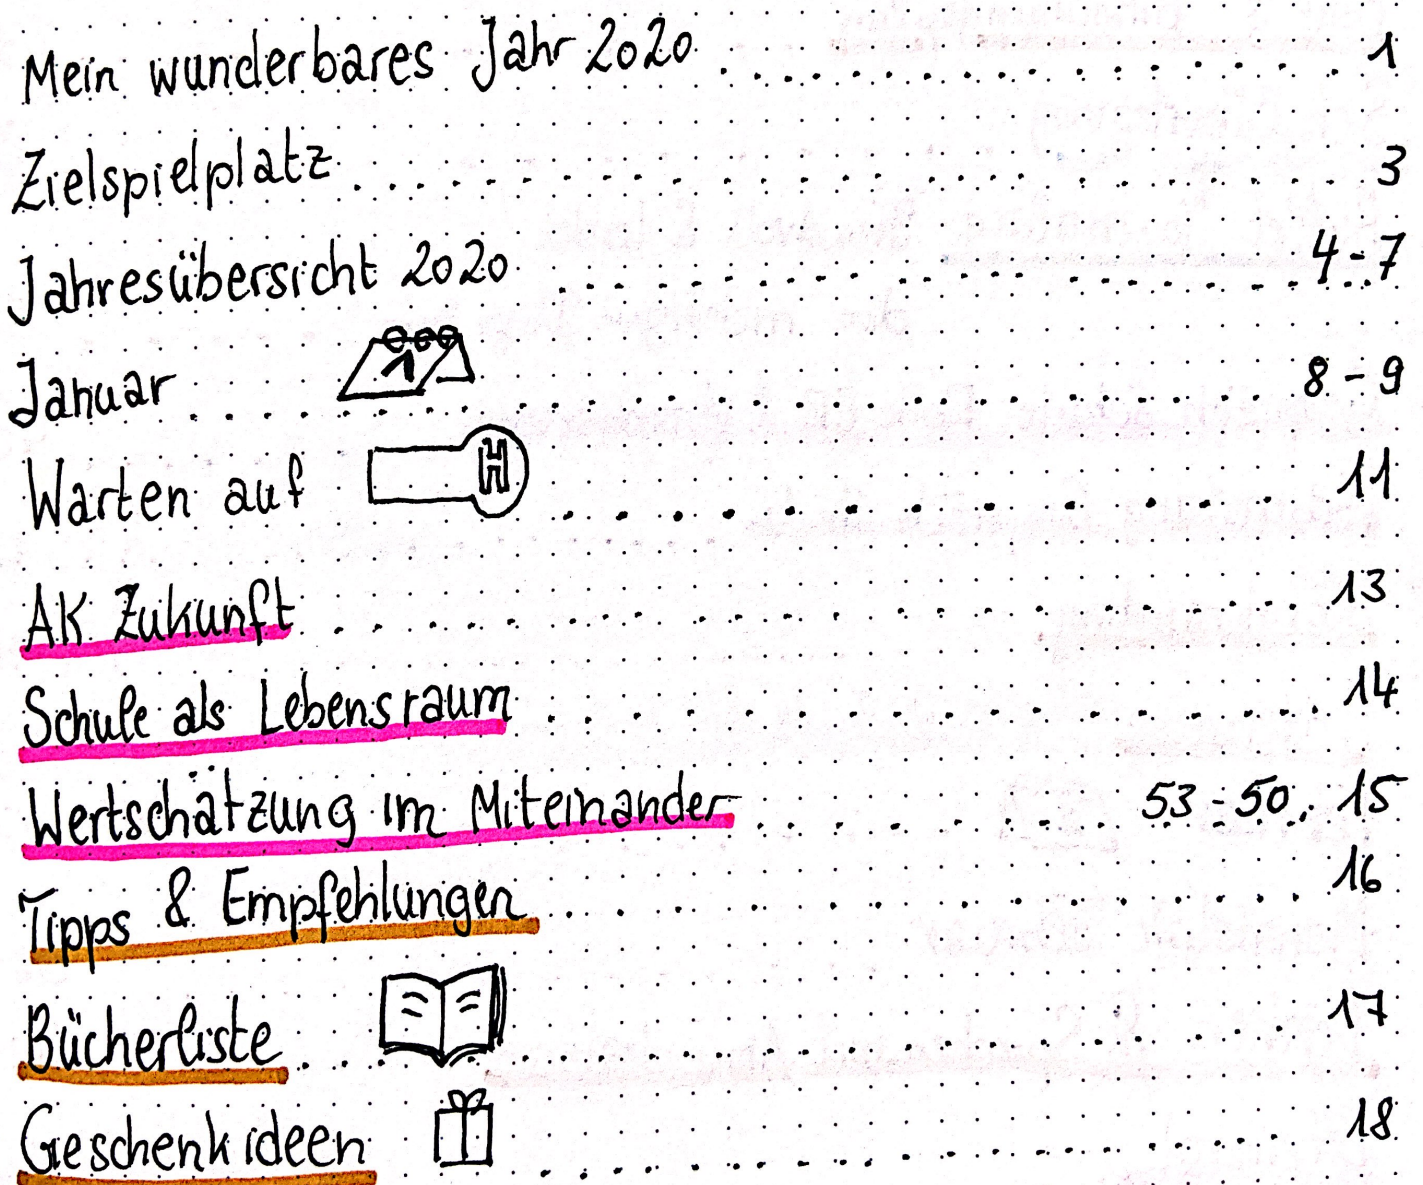 Mein wunderbares Jahr 2020 1
Zielspielplatz 3
Jahresübersicht 2020 4-7
Januar 1 8-9
Warten auf H 11
AK Zukunft 13
Schule als Lebensraum 14
Wertschätzung im Miteinander 53-50, 15
Tipps & Empfehlungen 16
Bücherliste 17
Geschenkideen 18